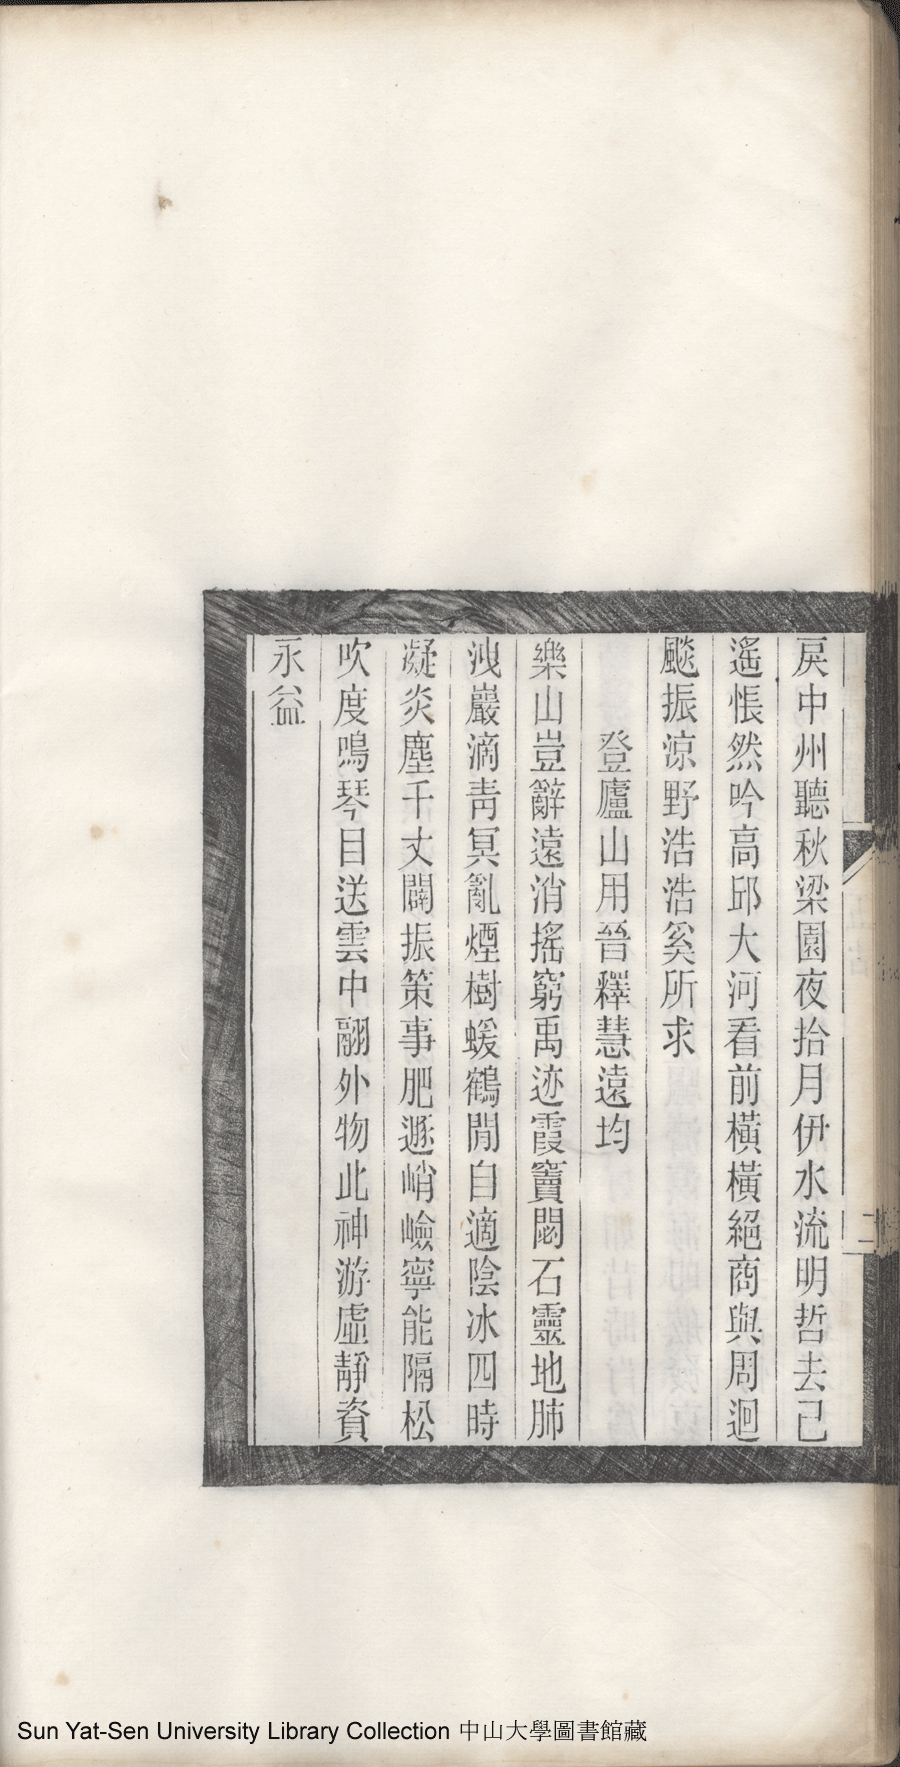 戻中州聽秋梁園夜拾月伊水流明哲去已
遙悵然吟高邱大河看前橫橫絕商與周迴
飈振涼野浩浩奚所求
登廬山用晉釋慧遠均
樂山豈辭遠消搖窮禹迹霞竇閟石靈地肺
洩巖滴靑冥亂煙樹蝯鶴閒自適陰冰四時
凝炎塵千丈闢振策事肥遯峭嶮寧能隔松
吹度鳴琴目送雲中翮外物此神游虛靜資
永益
二
Sun Yat-Sen University Library Collection 中山大學圖書館藏